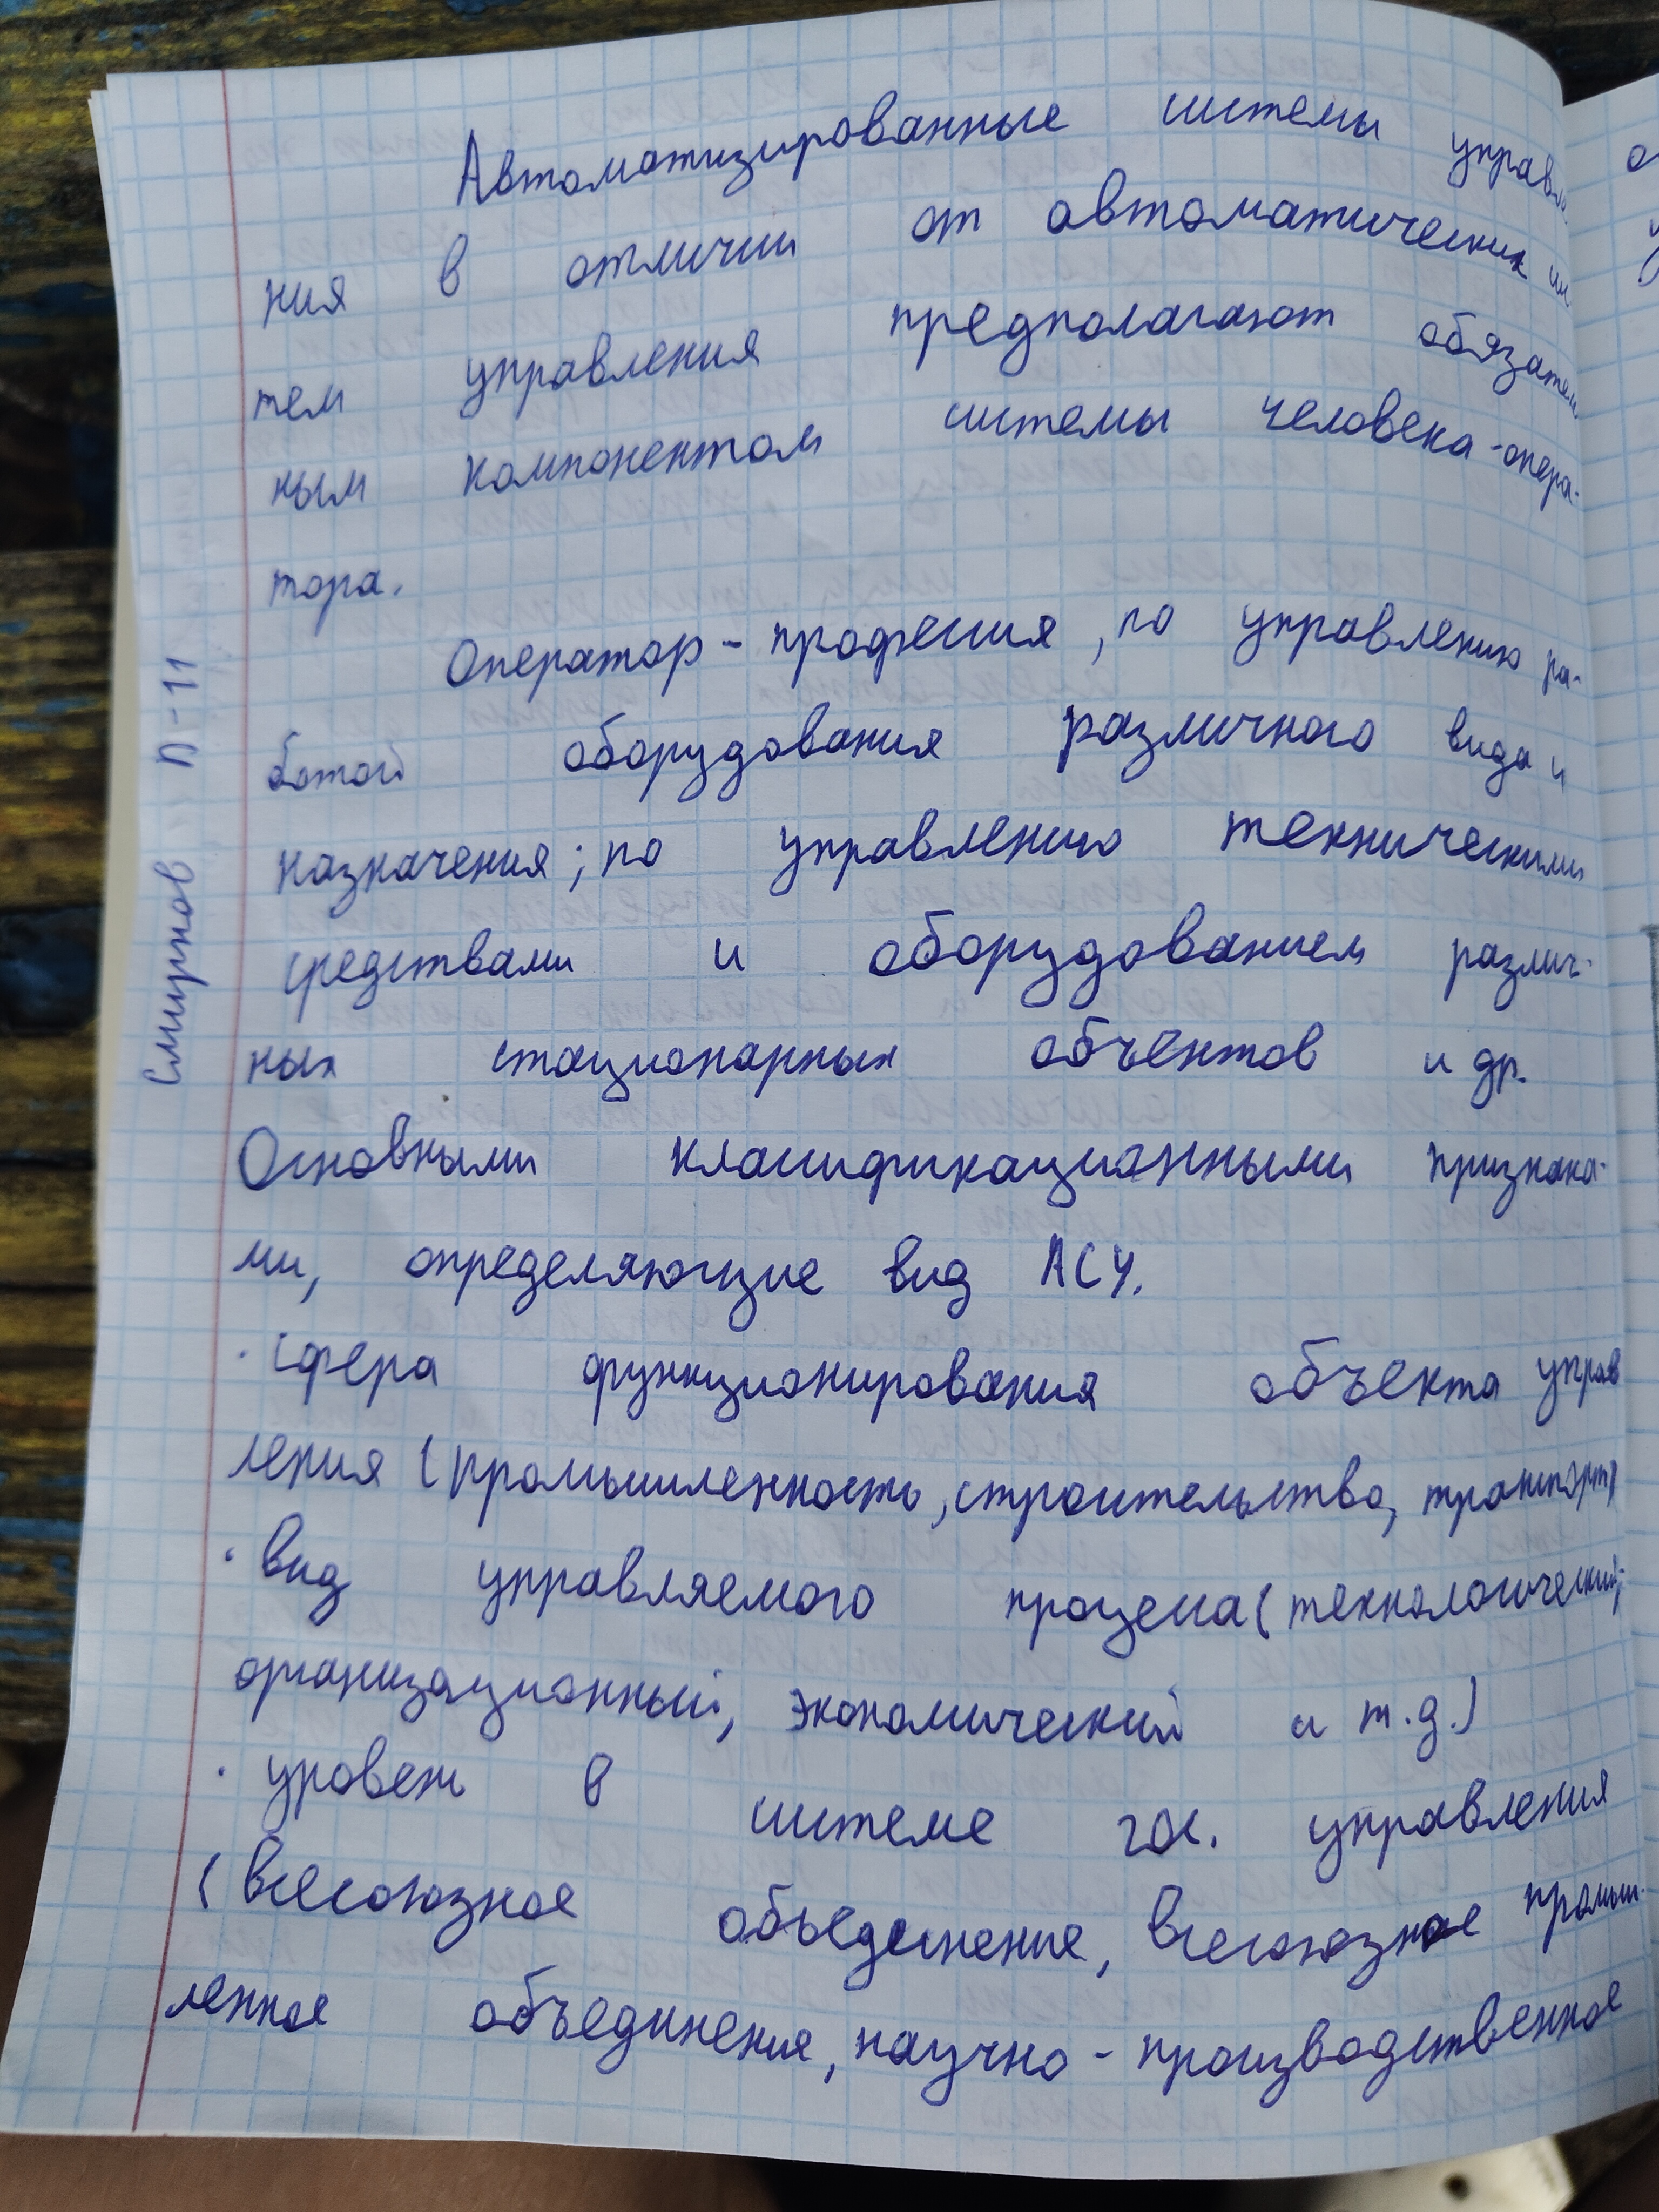 Автоматизированные системы управле
ния в отличии от автоматических сис
тем управления предполагают обязатель
ным компонентом системы человека-опера-
тора.
Оператор - профессия, по управлению ра-
ботой оборудования различного вида и
назначения; по управлению техническими
средствами и оборудованием различ-
ных стационарных объектов и др.
Основными классификационными признака-
ми, определяющие вид АСУ.
· сфера функционирования объекта управ
ления (промышленность, строительство, транспорт)
· вид управляемого процесса (технологический,
организационный, экономический и т.д.)
· уровень в системе гос. управления
(всесоюзное объединение, всесоюзное промыш-
ленное объединения, научно - производственное
Смирнов П-11